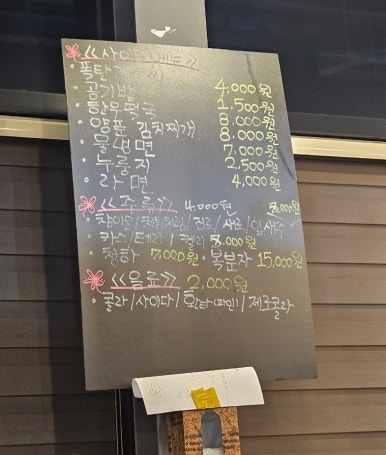 <<사이드메뉴>>
· 폭탄계란찜 4,000원
· 공기밥 1,500원
· 한우떡국 8,000원
· 양푼 김치찌개 8,000원
· 물냉면 7,000원
· 누룽지 2,500원
· 라면 4,000원
<<주류>> 4,000원 5,000원
· 참이슬/처음처럼/진로/새로/잎새주
· 카스/테라/켈리 5,000원
· 청하 7,000원 · 복분자 15,000원
<<음료>> 2,000원
· 콜라/사이다/환타(파인)/제로콜라